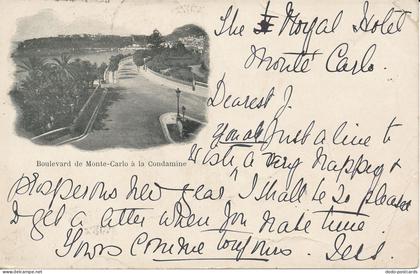 The Royal Hotel
Monte Carlo.
Dearest J.
Just a line to
wish a very happy &
prosperous new year. I shall be so pleased
to get a letter when you have time.
Yours comme toujours.
Boulevard de Monte-Carlo à la Condamine